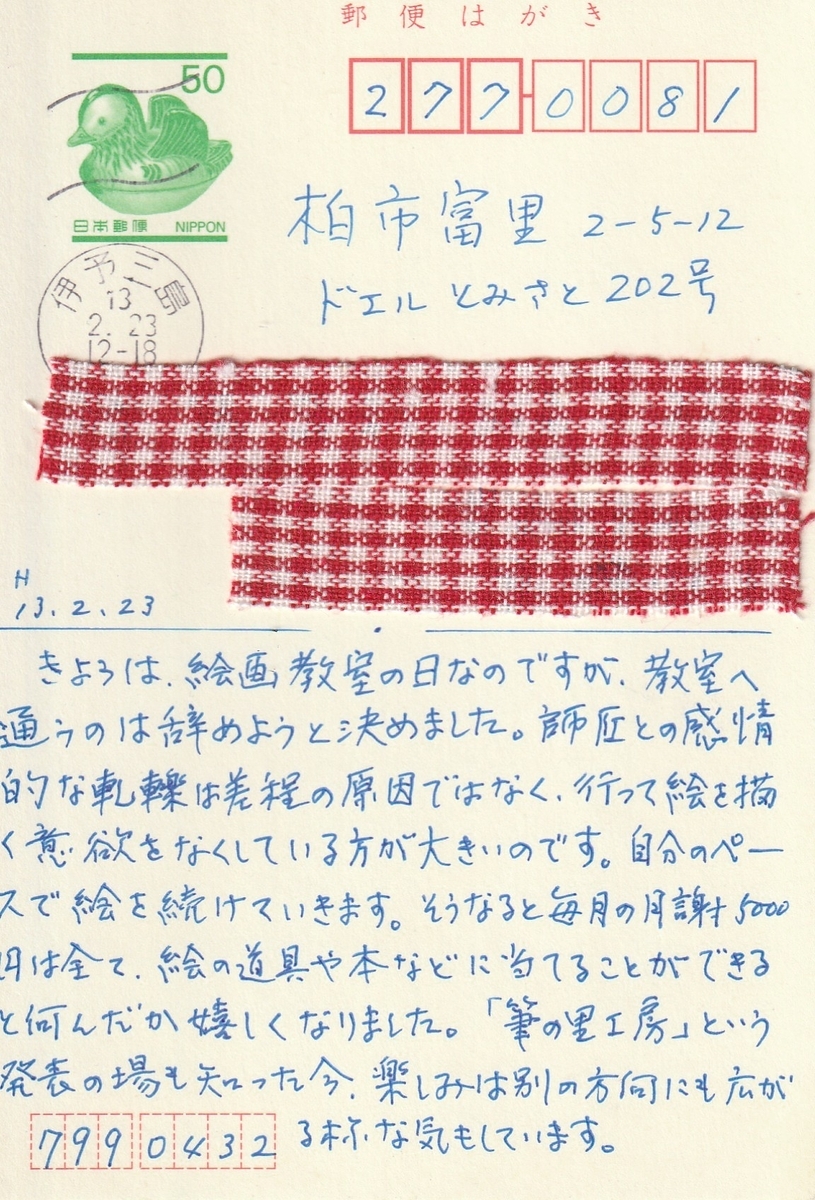 郵便はがき
50
日本郵便 NIPPON
277-0081
柏市富里 2-5-12
ドエルとみさと202号
伊予三島
13
2.23
12-18
H
13.2.23
きょうは、絵画教室の日なのですが、教室へ
通うのは辞めようと決めました。師匠との感情
的な軋轢は差程の原因ではなく、行って絵を描
く意欲をなくしている方が大きいのです。自分のペー
スで絵を続けていきます。そうなると毎月の月謝5000
円は全て、絵の道具や本などに当てることができる
と何んだか嬉しくなりました。「筆の里工房」という
発表の場も知った今、楽しみは別の方向にも広が
る様な気もしています。
7990432